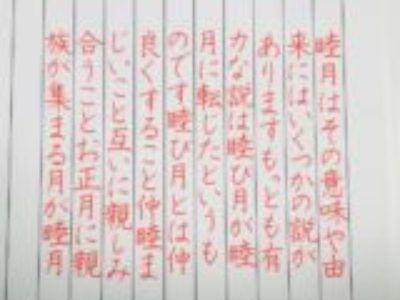 睦月はその意味や由
来にはいくつかの説が
ありますもっとも有
力な説は睦び月が睦
月に転じたというも
のです睦び月とは仲
良くすること仲睦ま
じいこと互いに親しみ
合うことお正月に親
族が集まる月が睦月